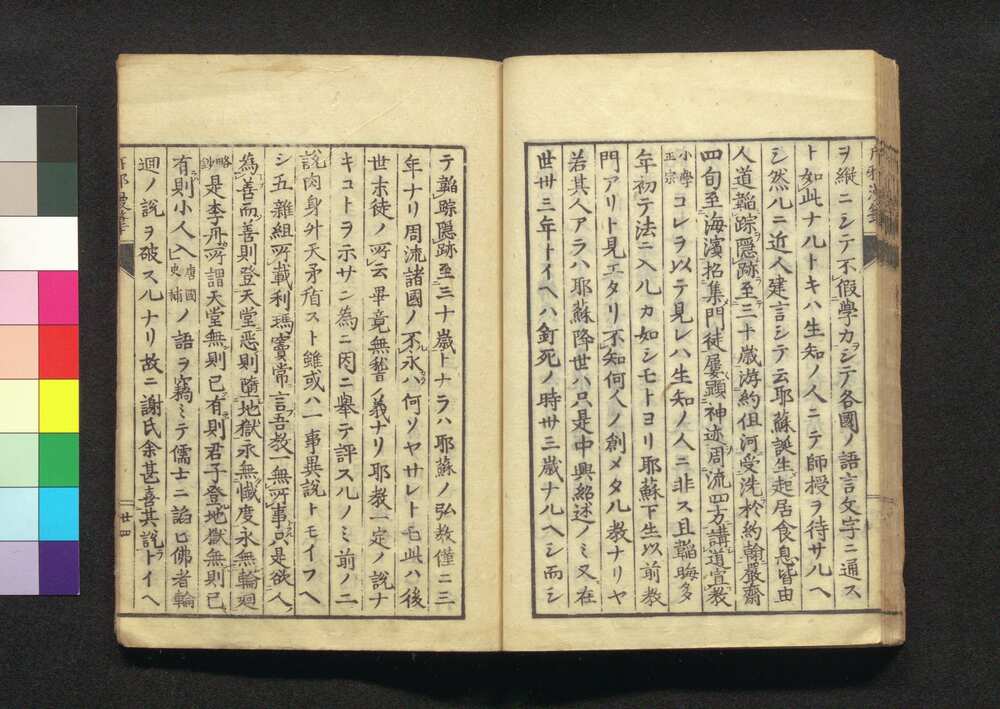 ヲ縦ニシテ不假學力シテ各國ノ語言文字ニ通ス
ト如此ナルトキハ生知ノ人ニテ師授ヲ待サルヘ
シ然ルニ近人建言シテ云耶蘇誕生起居食息皆由
人道韜踪隱跡至三十歳游約但河受洗於約翰嚴齋
四旬至海濱招集門徒屢顯神迹周流四方講道宣教
小學正宗コレヲ以テ見レハ生知ノ人ニ非ス且韜晦多
年初テ法ニ入ルカ如シモトヨリ耶蘇下生以前教
門アリト見エタリ不知何人ノ創メタル教ナリヤ
若其人アラハ耶蘇降世ハ只是中興紹述ノミ又在
世丗三年トイヘハ釘死ノ時丗三歳ナルヘシ而シ
テ韜踪隱跡至三十歳トナラハ耶蘇ノ弘教僅ニ三
年ナリ周流諸國ノ不永ハ何ソヤサレトモ此ハ後
世末徒ノ所云畢竟無稽ノ義ナリ耶教一定ノ説ナ
キコトヲ示サン為ニ因ニ舉テ評スルノミ前ノ二
説肉身外天矛盾スト雖或ハ一事異説トモイフヘ
シ五雜組所載利瑪竇常言吾教一無所事只是欲人
為善而善則登天堂惡則墮地獄永無懺度永無輪廻
略鈔是李舟所謂天堂無則已有則君子登地獄無則已
有則小人入唐國史補ノ語ヲ竊ミテ儒士ニ諂ヒ佛者輪
廻ノ説ヲ破スルナリ故ニ謝氏余甚喜其説トイヘ
廿四